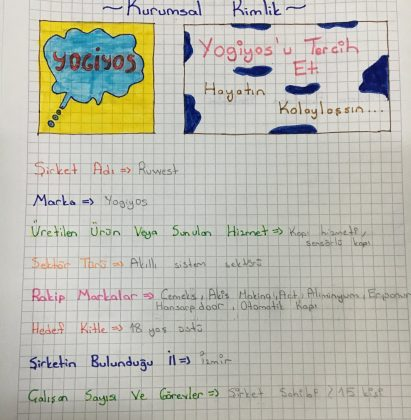 ~ Kurumsal Kimlik ~
YOGİYOS
Yogiyos'u Tercih
Et.
Hayatın
Kolaylaşsın...
Şirket Adı => Ruwest
Marka => Yogiyos
Üretilen Ürün Veya Sunulan Hizmet => Kapı hizmeti,
sensörlü kapı
Sektör Türü => Akıllı sistem sektörü
Rakip Markalar => Cemeks, Akis Making, Act, Aliminyum,
Hansan door, Otomatik Kapı
Hedef Kitle => 18 yaş üstü
Şirketin Bulunduğu İl => İzmir
Çalışan Sayısı Ve Görevler => Şirket Sahibi / 15 kişi